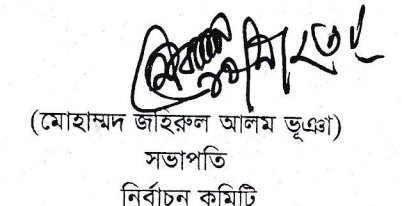 (মোহাম্মদ জহিরুল আলম ভূঞা)
সভাপতি
নির্বাচন কমিটি